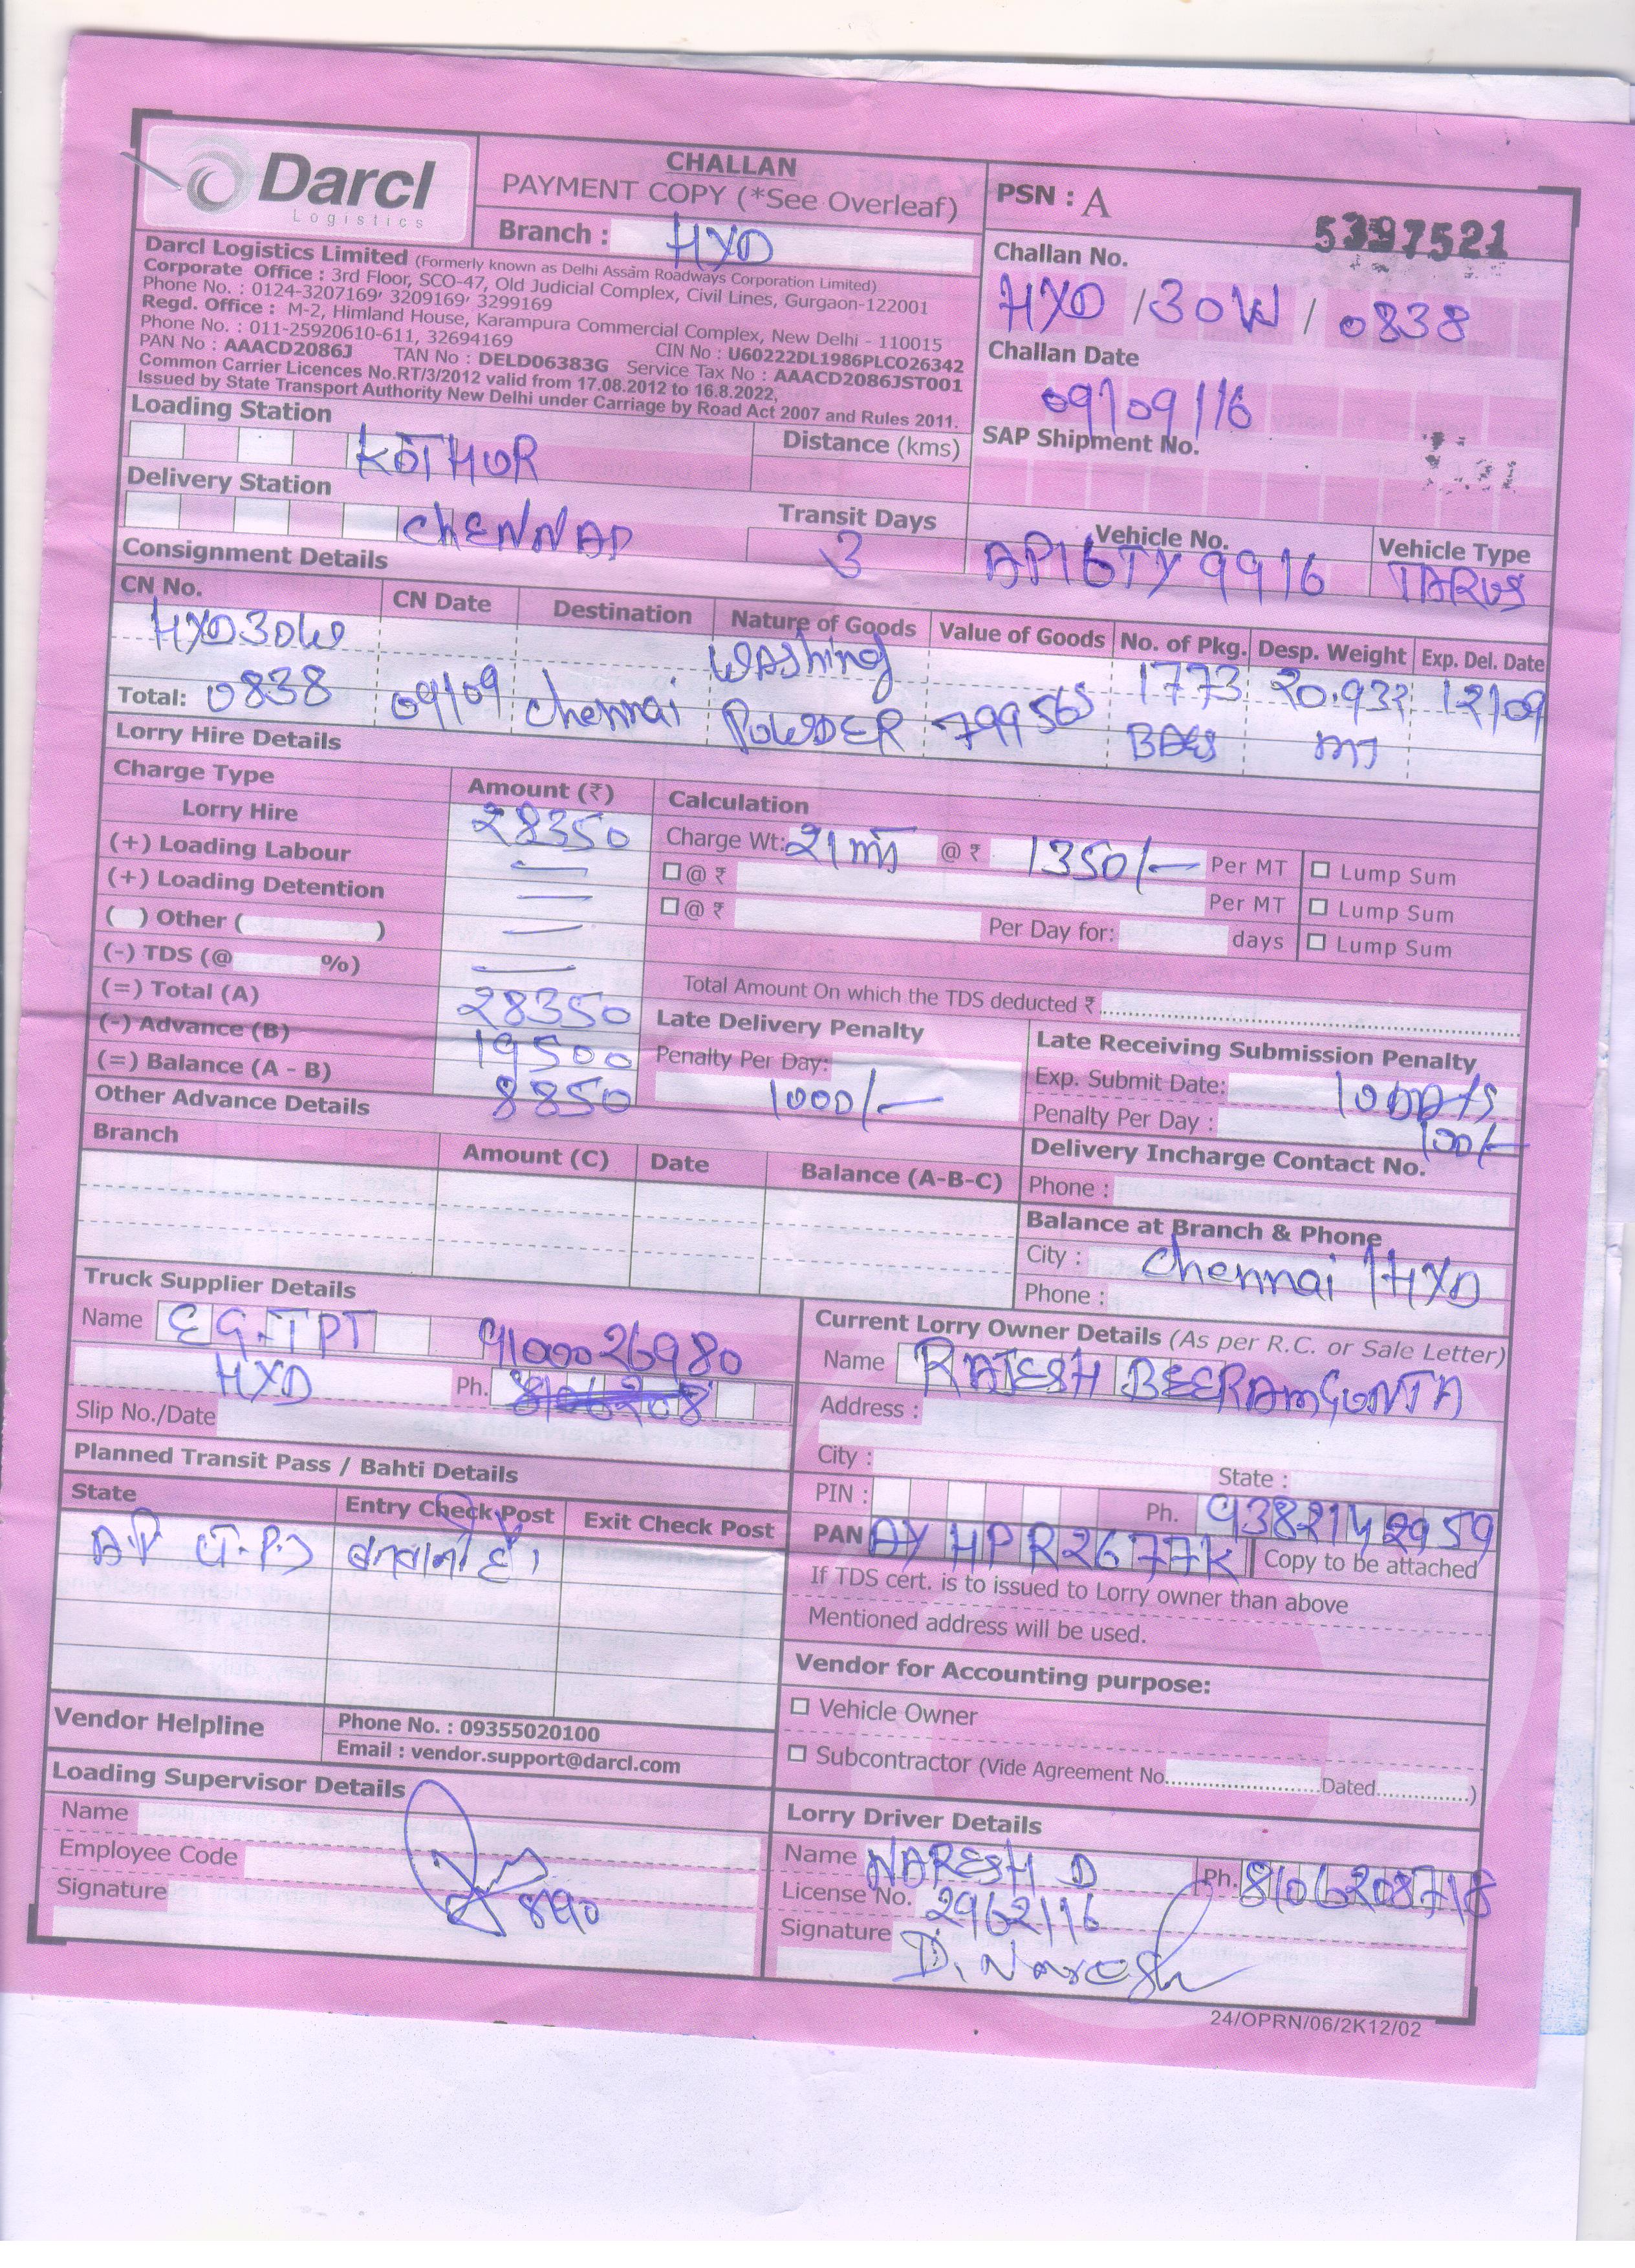 Darcl
Logistics
CHALLAN
PAYMENT COPY (*See Overleaf)
Branch : HYD
PSN : A
5397521
Darcl Logistics Limited (Formerly known as Delhi Assam Roadways Corporation Limited)
Corporate Office : 3rd Floor, SCO-47, Old Judicial Complex, Civil Lines, Gurgaon-122001
Phone No. : 0124-3207169, 3209169, 3299169
Regd. Office : M-2, Himland House, Karampura Commercial Complex, New Delhi - 110015
Phone No. : 011-25920610-611, 32694169
CIN No : U60222DL1986PLCO26342
PAN No : AAACD2086J TAN No : DELD06383G Service Tax No : AAACD2086JST001
Common Carrier Licences No.RT/3/2012 valid from 17.08.2012 to 16.8.2022,
Issued by State Transport Authority New Delhi under Carriage by Road Act 2007 and Rules 2011.
Challan No.
HYD / 30W / 0838
Challan Date
09/09/16
SAP Shipment No.
Loading Station
KOTHUR
Distance (kms)
Delivery Station
CHENNAI
Transit Days
3
Vehicle No.
AP16TY 9916
Vehicle Type
TARUS
Consignment Details
CN No. CN Date Destination Nature of Goods Value of Goods No. of Pkg. Desp. Weight Exp. Del. Date
HYD30W Washing 1773 20.932 12/09
Total: 0838 09/09 Chennai POWDER 799565 BAGS MT
Lorry Hire Details
Charge Type Amount (₹) Calculation
Lorry Hire 28350 Charge Wt: 21 MT @ ₹ 1350/- Per MT Lump Sum
(+) Loading Labour — @ ₹ Per MT Lump Sum
(+) Loading Detention — @ ₹ Per Day for: days Lump Sum
( ) Other ( ) —
(-) TDS (@ %) — Total Amount On which the TDS deducted ₹
(=) Total (A) 28350
(-) Advance (B) 19500
(=) Balance (A - B) 8850
Late Delivery Penalty
Penalty Per Day:
1000/-
Late Receiving Submission Penalty
Exp. Submit Date: 10 DAYS
Penalty Per Day : 100/-
Other Advance Details
Branch Amount (C) Date Balance (A-B-C)
Delivery Incharge Contact No.
Phone :
Balance at Branch & Phone
City : Chennai / HYD
Phone :
Truck Supplier Details
Name EG.TPT 9100026980
HYD Ph.
Slip No./Date
Current Lorry Owner Details (As per R.C. or Sale Letter)
Name RAJESH BEERAMGUNTA
Address :
City : State :
PIN : Ph. 9382142959
PAN AYHPR2677K Copy to be attached
If TDS cert. is to issued to Lorry owner than above
Mentioned address will be used.
Planned Transit Pass / Bahti Details
State Entry Check Post Exit Check Post
A.P
Vendor for Accounting purpose:
Vehicle Owner
Subcontractor (Vide Agreement No. Dated )
Vendor Helpline
Phone No. : 09355020100
Email : vendor.support@darcl.com
Loading Supervisor Details
Name
Employee Code
Signature
Lorry Driver Details
Name NARESH D Ph. 8106208718
License No. 2962/16
Signature D. Naresh
24/OPRN/06/2K12/02